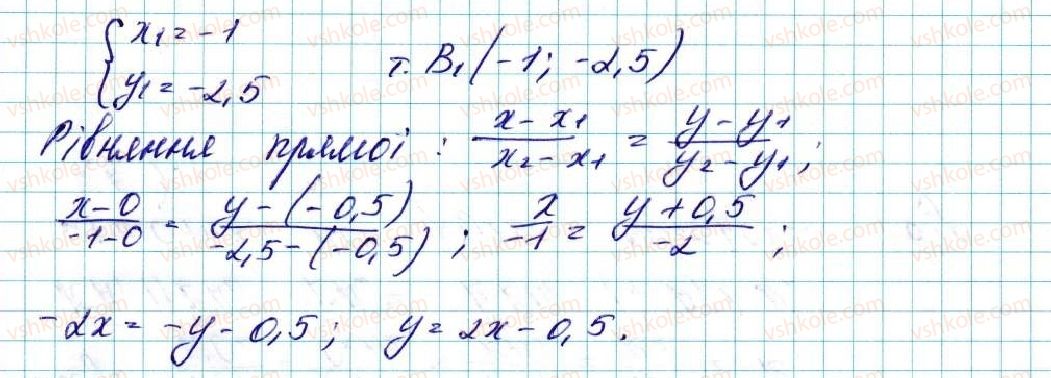 { x₁ = -1
{ y₁ = -2,5    т. B₁ (-1; -2,5)
Рівняння прямої : (x - x₁)/(x₂ - x₁) = (y - y₁)/(y₂ - y₁) ;
(x - 0)/(-1 - 0) = (y - (-0,5))/(-2,5 - (-0,5)) ; x/(-1) = (y + 0,5)/(-2) ;
-2x = -y - 0,5 ; y = 2x - 0,5 .